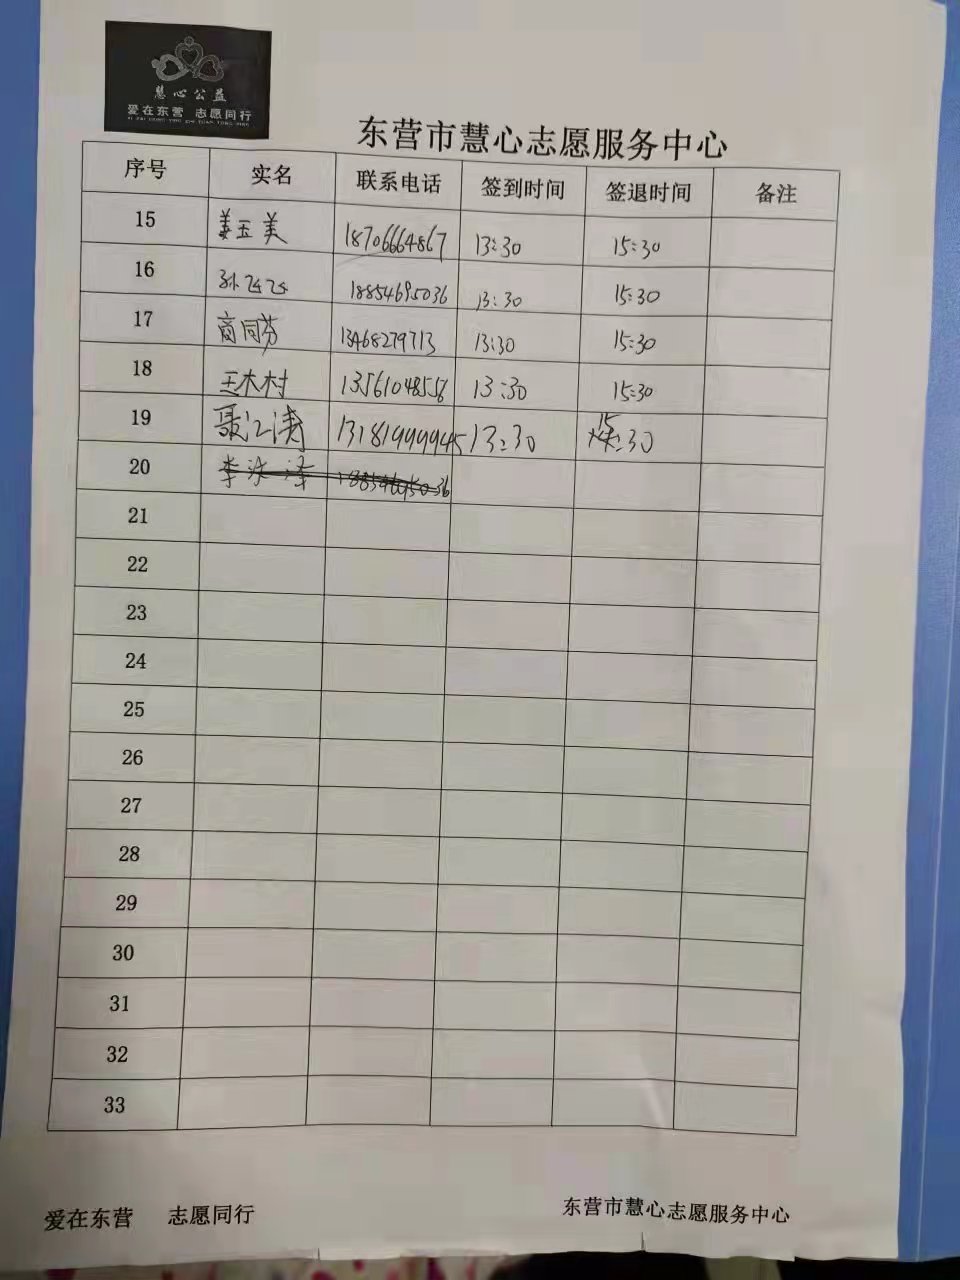 慧心公益
爱在东营 志愿同行
东营市慧心志愿服务中心
序号 实名 联系电话 签到时间 签退时间 备注
15 姜玉美 18706664867 13:30 15:30
16 孙飞飞 18854695036 13:30 15:30
17 商同芬 13468279713 13:30 15:30
18 王木村 13561048556 13:30 15:30
19 聂江涛 13181999945 13:30 15:30
20 李 泽 18854695036
21
22
23
24
25
26
27
28
29
30
31
32
33
爱在东营 志愿同行 东营市慧心志愿服务中心